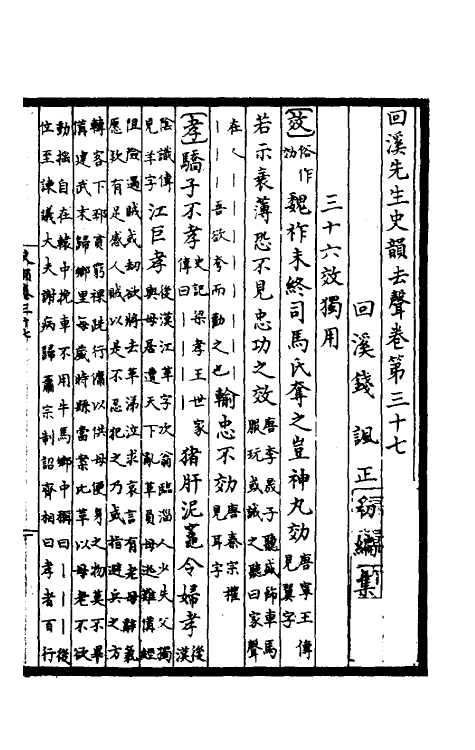 回溪先生史韻去聲卷第三十七
回溪錢諷正初編集
三十六效獨用
效俗作効魏祚未終司馬氏奪之豈神丸効唐寧王傳見翼字
若示衰薄恐不見忠功之效唐李晟子聽盛飾車馬服玩或誡之聽曰家聲
在人丨丨丨丨丨丨吾欲夸而勸之也輸忠不効唐秦宗權見耳字
孝驕子不孝史記梁孝王世家傳曰丨丨丨丨猪肝泥竈令婦孝後漢
陰識傳見羊字江巨孝後漢江革字次翁臨淄人少失父獨與母居遭天下亂革負母逃難備經
阻險遇賊或劫欲將去革涕泣求哀言有老母辭氣愿欵有足感人賊以是不忍犯之乃或指避兵之方
轉客下邳貧窮裸跣行傭以供母便身之物莫不畢備建武末歸鄉里每歲時縣當案比革以母老不欲
動搖自在轅中挽車不用牛馬鄉中稱曰丨丨丨後位至諫議大夫謝病歸肅宗制詔齊相曰孝者百行